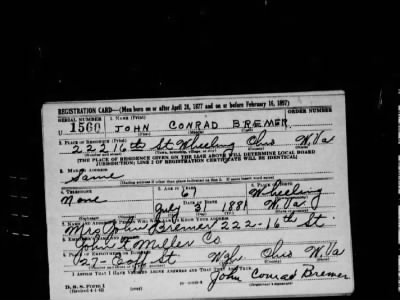 REGISTRATION CARD—(Men born on or after April 28, 1877 and on or before February 16, 1897)
SERIAL NUMBER 1. NAME (Print) ORDER NUMBER
U 1560 JOHN CONRAD BREMER
(First) (Middle) (Last)
2. PLACE OF RESIDENCE (Print)
222 16th St Wheeling Ohio W.Va
[THE PLACE OF RESIDENCE GIVEN ON THE LINE ABOVE WILL DETERMINE LOCAL BOARD
JURISDICTION; LINE 2 OF REGISTRATION CERTIFICATE WILL BE IDENTICAL]
3. MAILING ADDRESS
Same
4. TELEPHONE 5. AGE IN YEARS 6. PLACE OF BIRTH
None Wheeling
DATE OF BIRTH
July 31 1881 W.Va.
7. NAME AND ADDRESS OF PERSON WHO WILL ALWAYS KNOW YOUR ADDRESS
Mrs John Bremer 222-16th St
8. EMPLOYER'S NAME AND ADDRESS
John Miller Co
9. PLACE OF EMPLOYMENT OR BUSINESS
St Whg. Ohio W.Va
I AFFIRM THAT I HAVE VERIFIED ABOVE ANSWERS AND THAT THEY ARE TRUE.
D. S. S. FORM 1
(Revised 4-1-42) (over) John Conrad Bremer